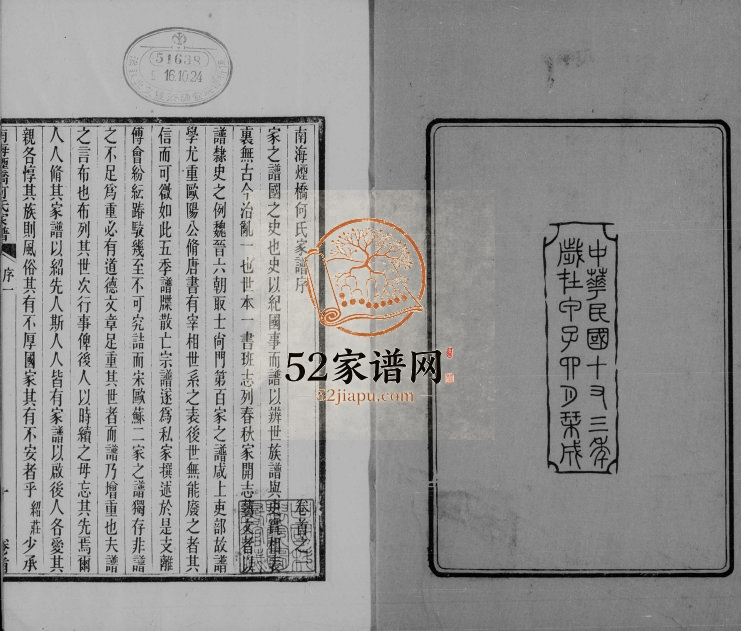 中華民國十又三年
歲在甲子四月栞成
51638
16.10.24
南海煙橋何氏家譜序
卷首之一
家之譜國之史也史以紀國事而譜以辨世族譜與史實相表
裏無古今治亂一也世本一書班志列春秋家開志藝文者以
譜隸史之例魏晉六朝取士尙門第百家之譜咸上吏部故譜
學尤重歐陽公脩唐書有宰相世系之表後世無能廢之者其
信而可徵如此五季譜牒散亡宗譜遂爲私家撰述於是支離
傅會紛紜踳駁幾至不可究詰而宋歐蘇二家之譜獨存非譜
之不足爲重必有道德文章足重其世者而譜乃增重也夫譜
之言布也布列其世次行事俾後人以時續之毋忘其先焉爾
人人脩其家譜以紹先人斯人人皆有家譜以啟後人各愛其
親各惇其族則風俗其有不厚國家其有不安者乎紹莊少承
南海煙橋何氏家譜
序一
卷首
52家谱网
52jiapu.com